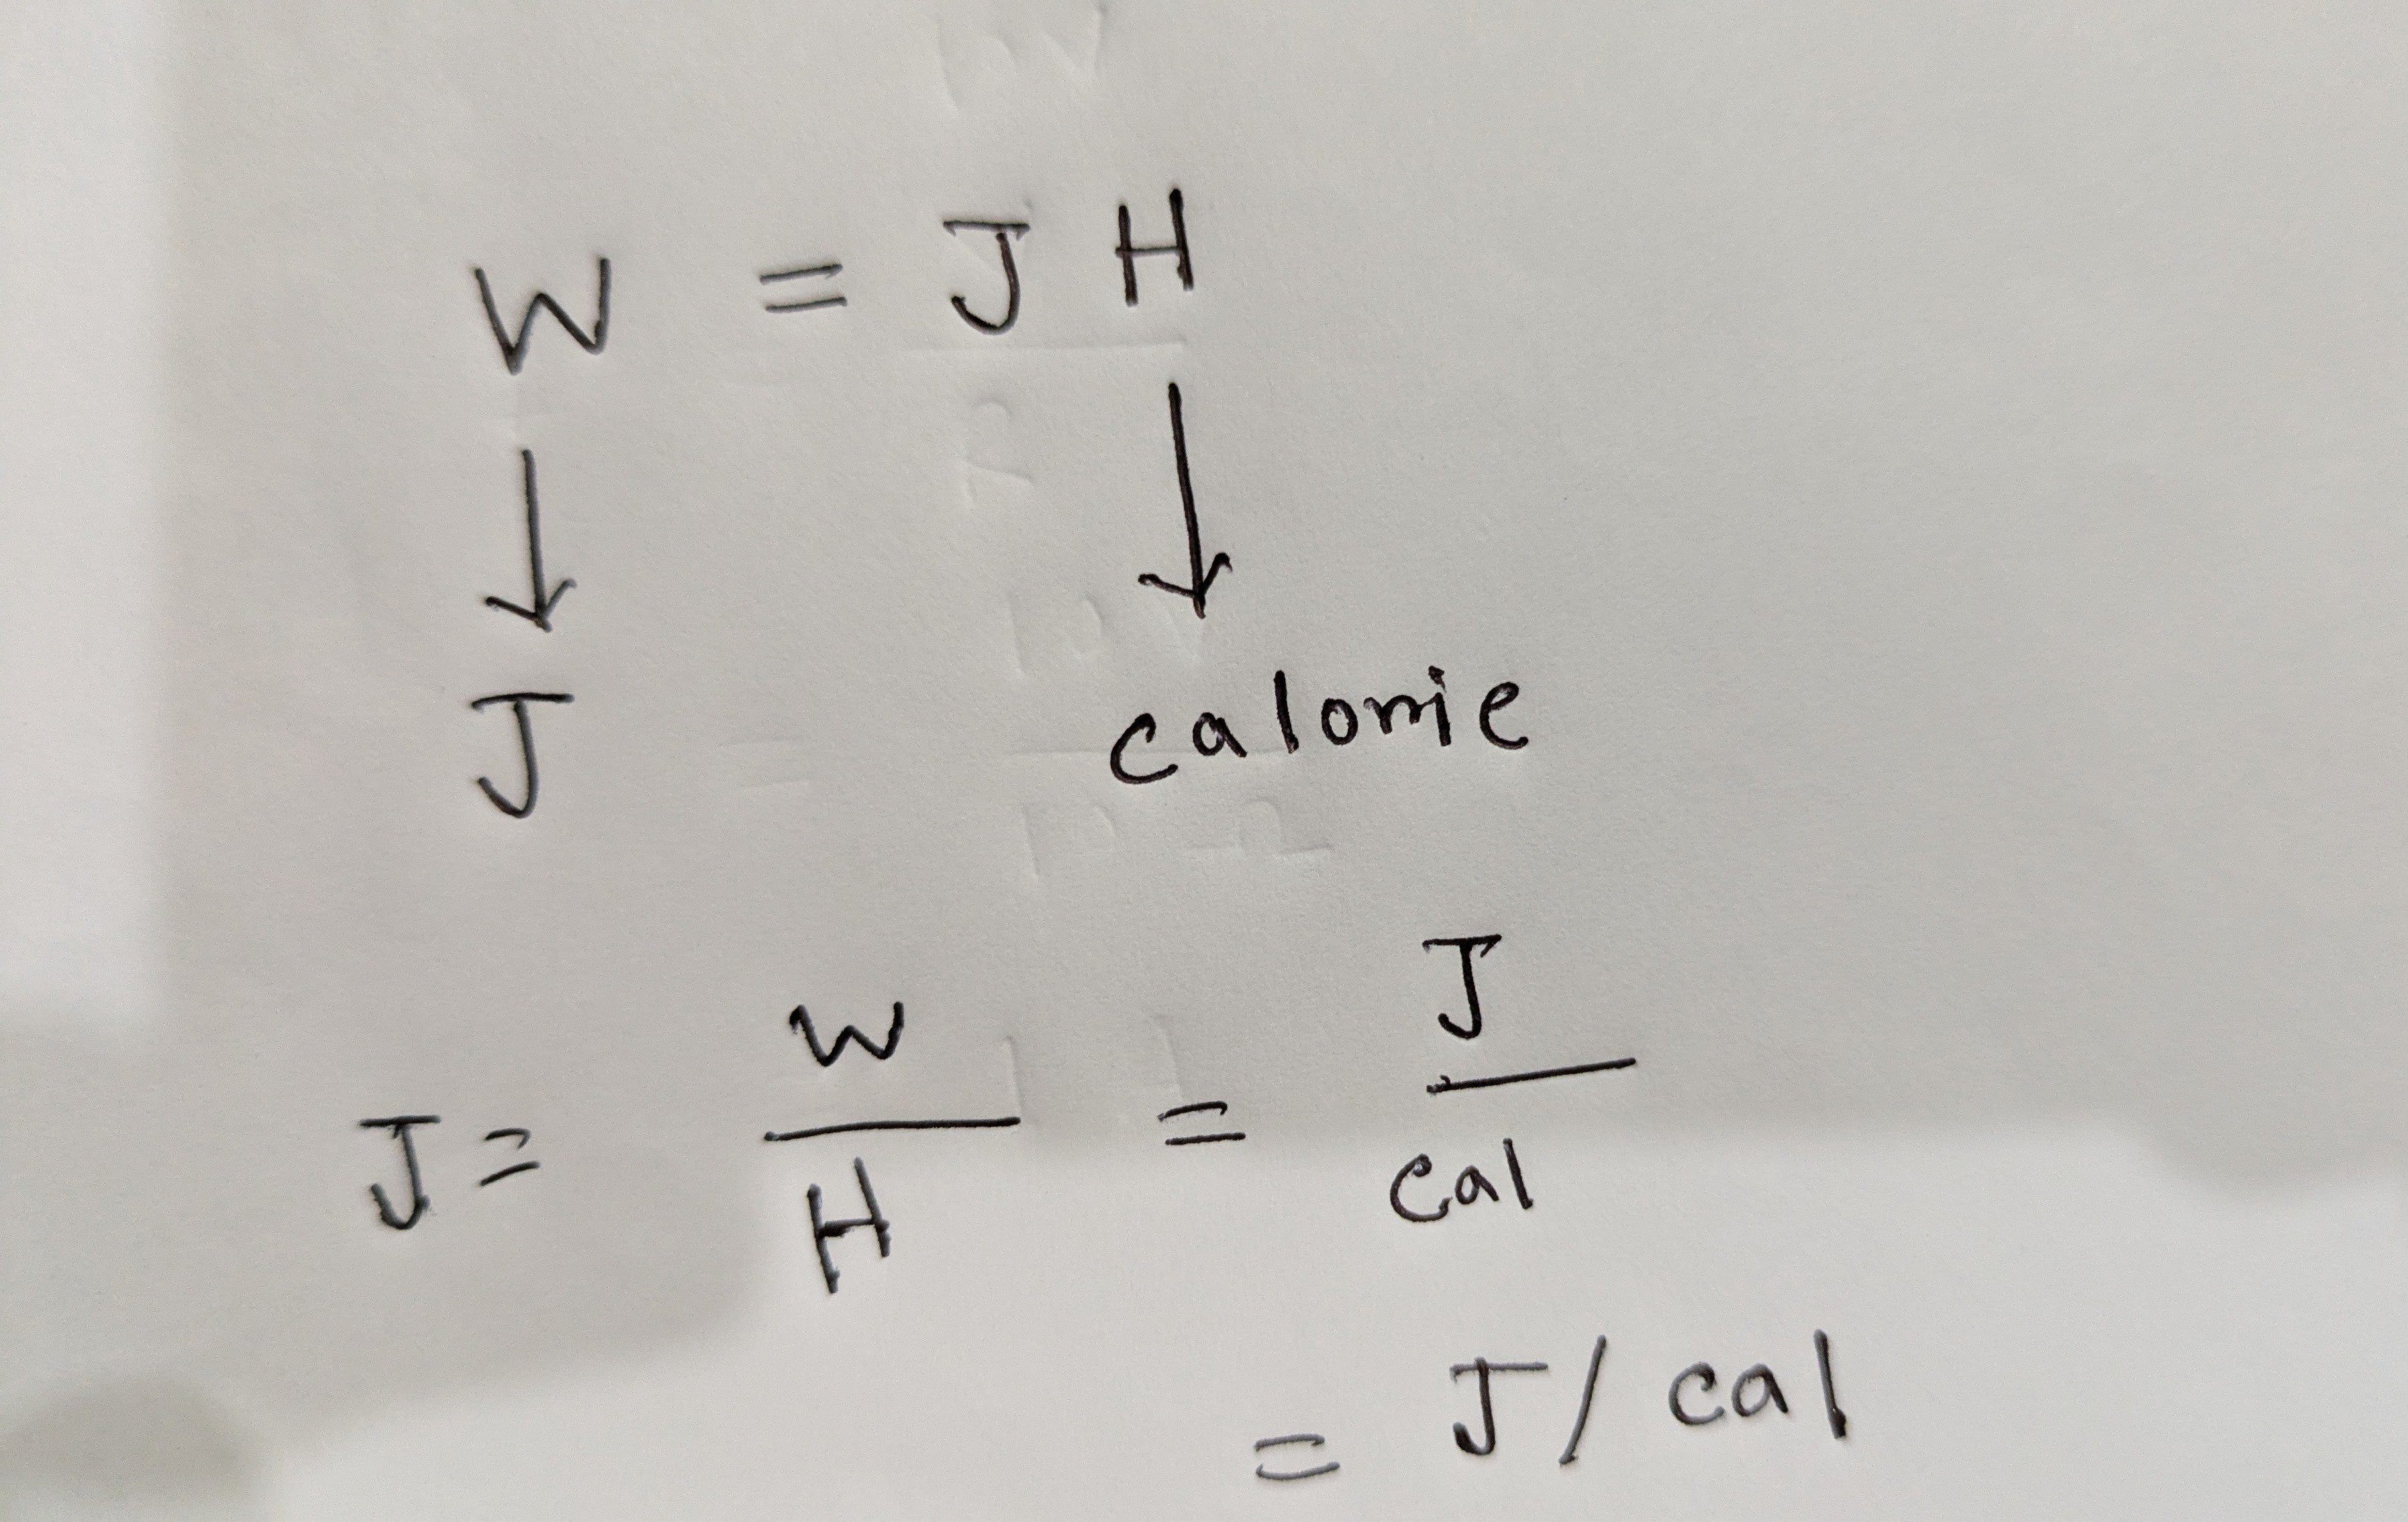 W = J H
↓ ↓
J calorie
J = W/H = J/cal
= J/cal